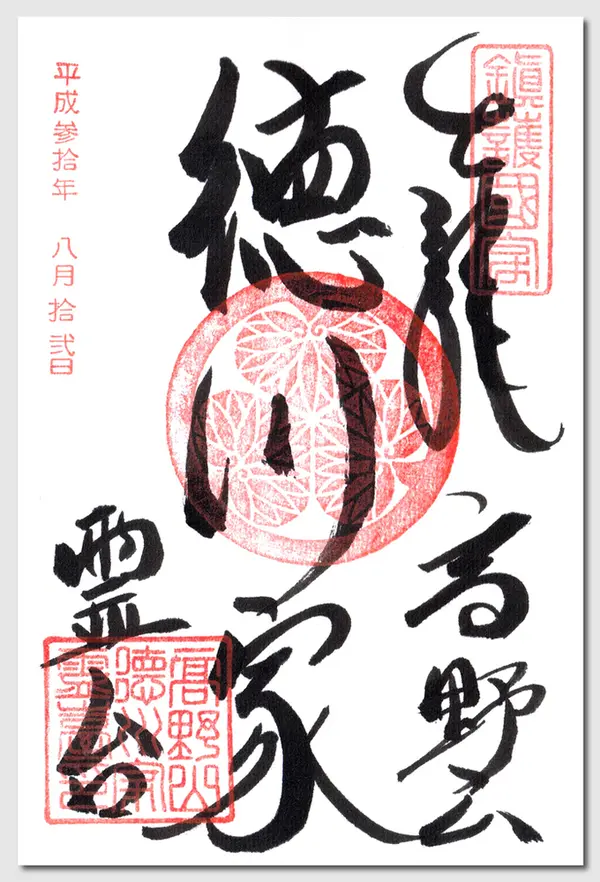 鎮護國家
高野山
徳川家
霊台
高野山
徳川家
平成参拾年 八月拾弐日